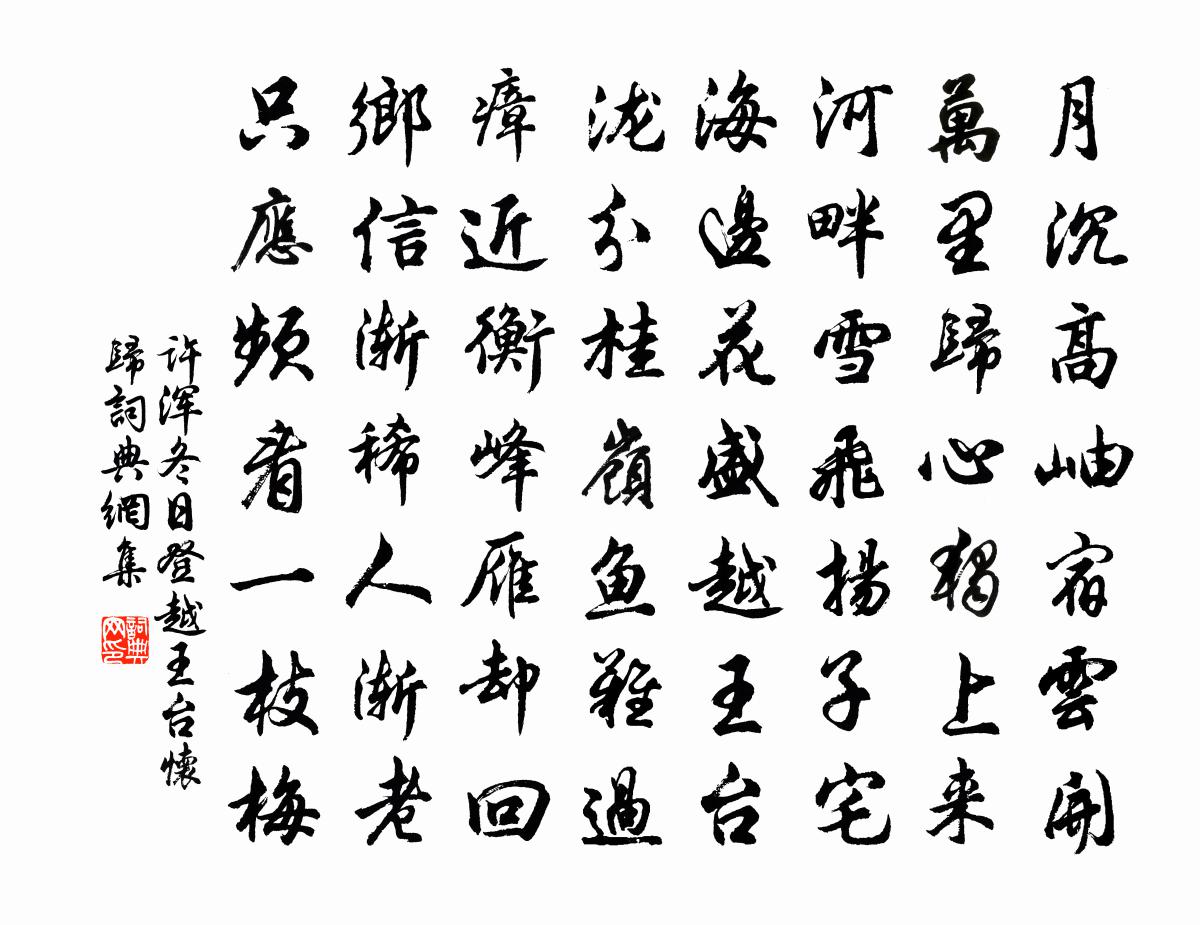 月沉高岫宿雲開
萬里歸心獨上来
河畔雪飛揚子宅
海邊花盛越王台
泷分桂嶺魚難過
瘴近衡峰雁却回
鄉信渐稀人渐老
只應頻看一枝梅
许渾冬日登越王台懷
歸詞典網集
詞典网印